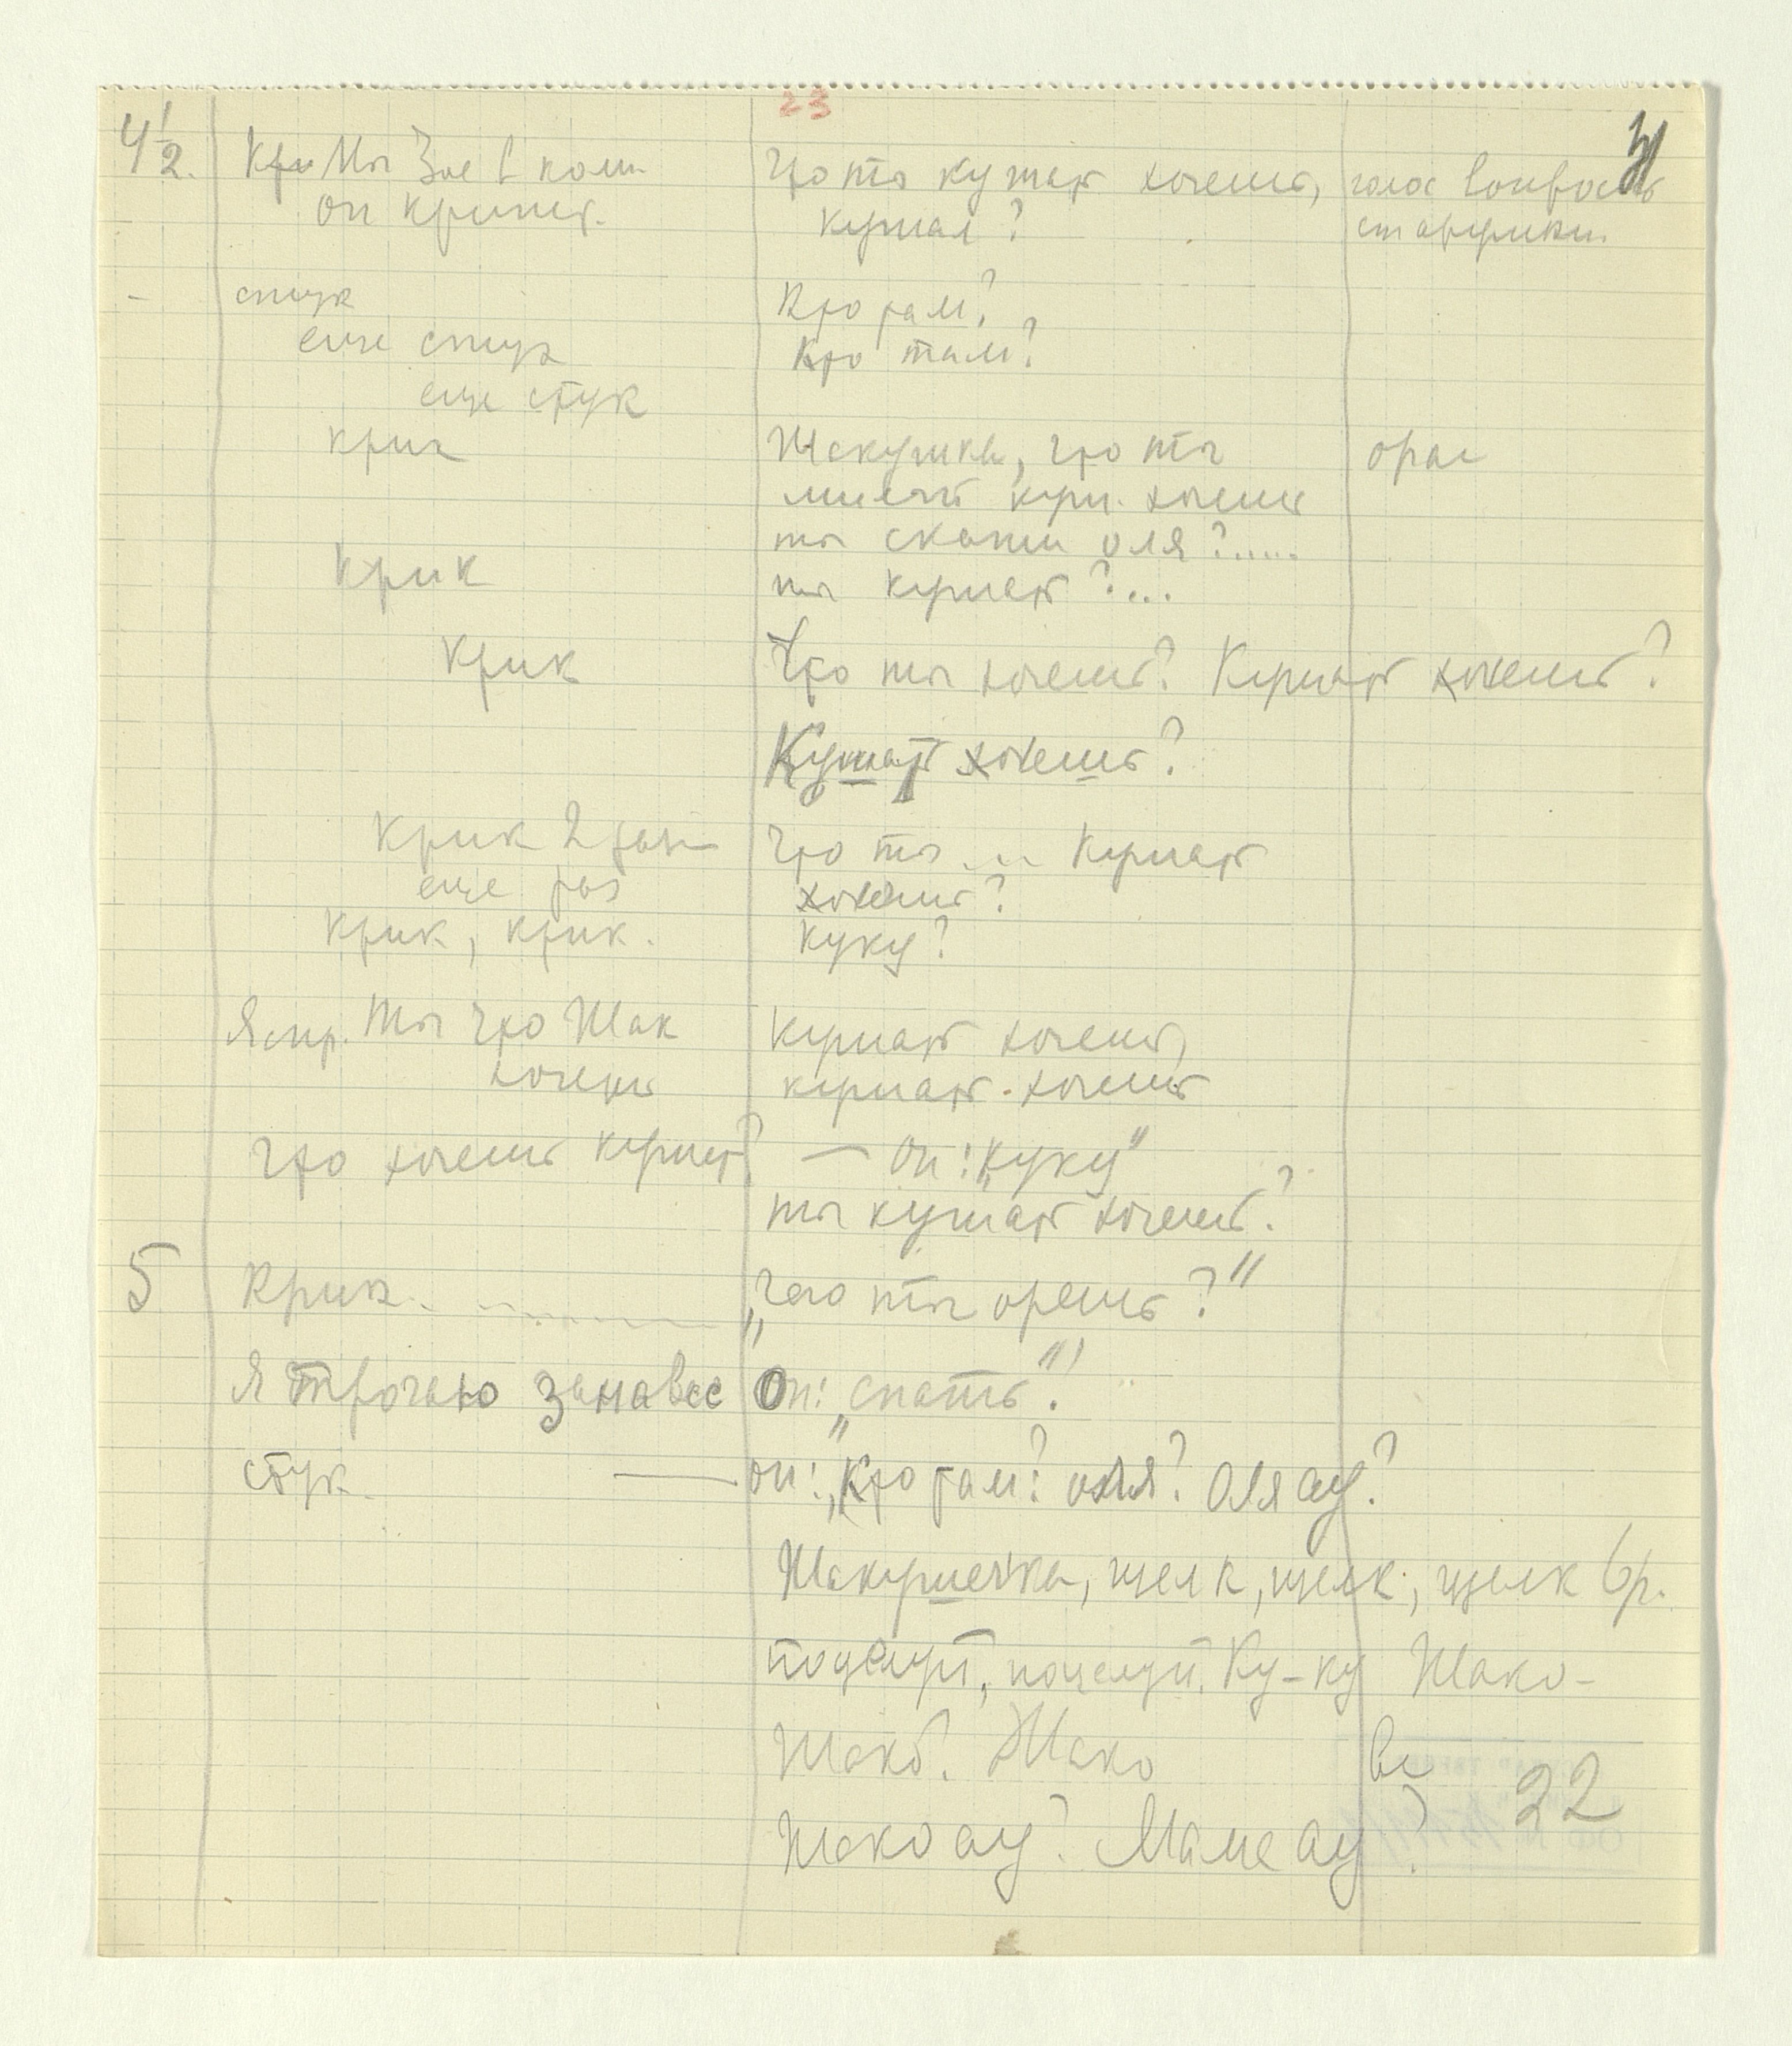 23
31
4 1/2. Кри Мы Зое в комн. Что ты кушат хочешь, голос вопрос
он кричит. кушал? старушки
- стук Кто там?
еще стук Кто там?
еще стук
крик Жакушка, что ты орал
милый куш. хочешь
ты скажи оля?.....
Крик ты кушать?...
Крик Что ты хочешь? Кушать хочешь?
Кушать хочешь?
Крик 2 раза Что ты ... Кушать
еще раз хочешь?
Крик, крик. куку?
Я спр. Ты что Жак Кушать хочешь,
хочешь кушать - хочешь
Что хочешь кушать? — Он: „куку"
ты кушать хочешь?
5 Крик. „чего ты орешь?"
Я трогаю занавес Он: „спать".
стук. — он: „Кто там? оля? Оля ау?
Жакушечка, щелк, щелк, щелк
поцелуй, поцелуй. Ку-ку Жако-
Жако. Жако
Жако ау? Маме ау?
22